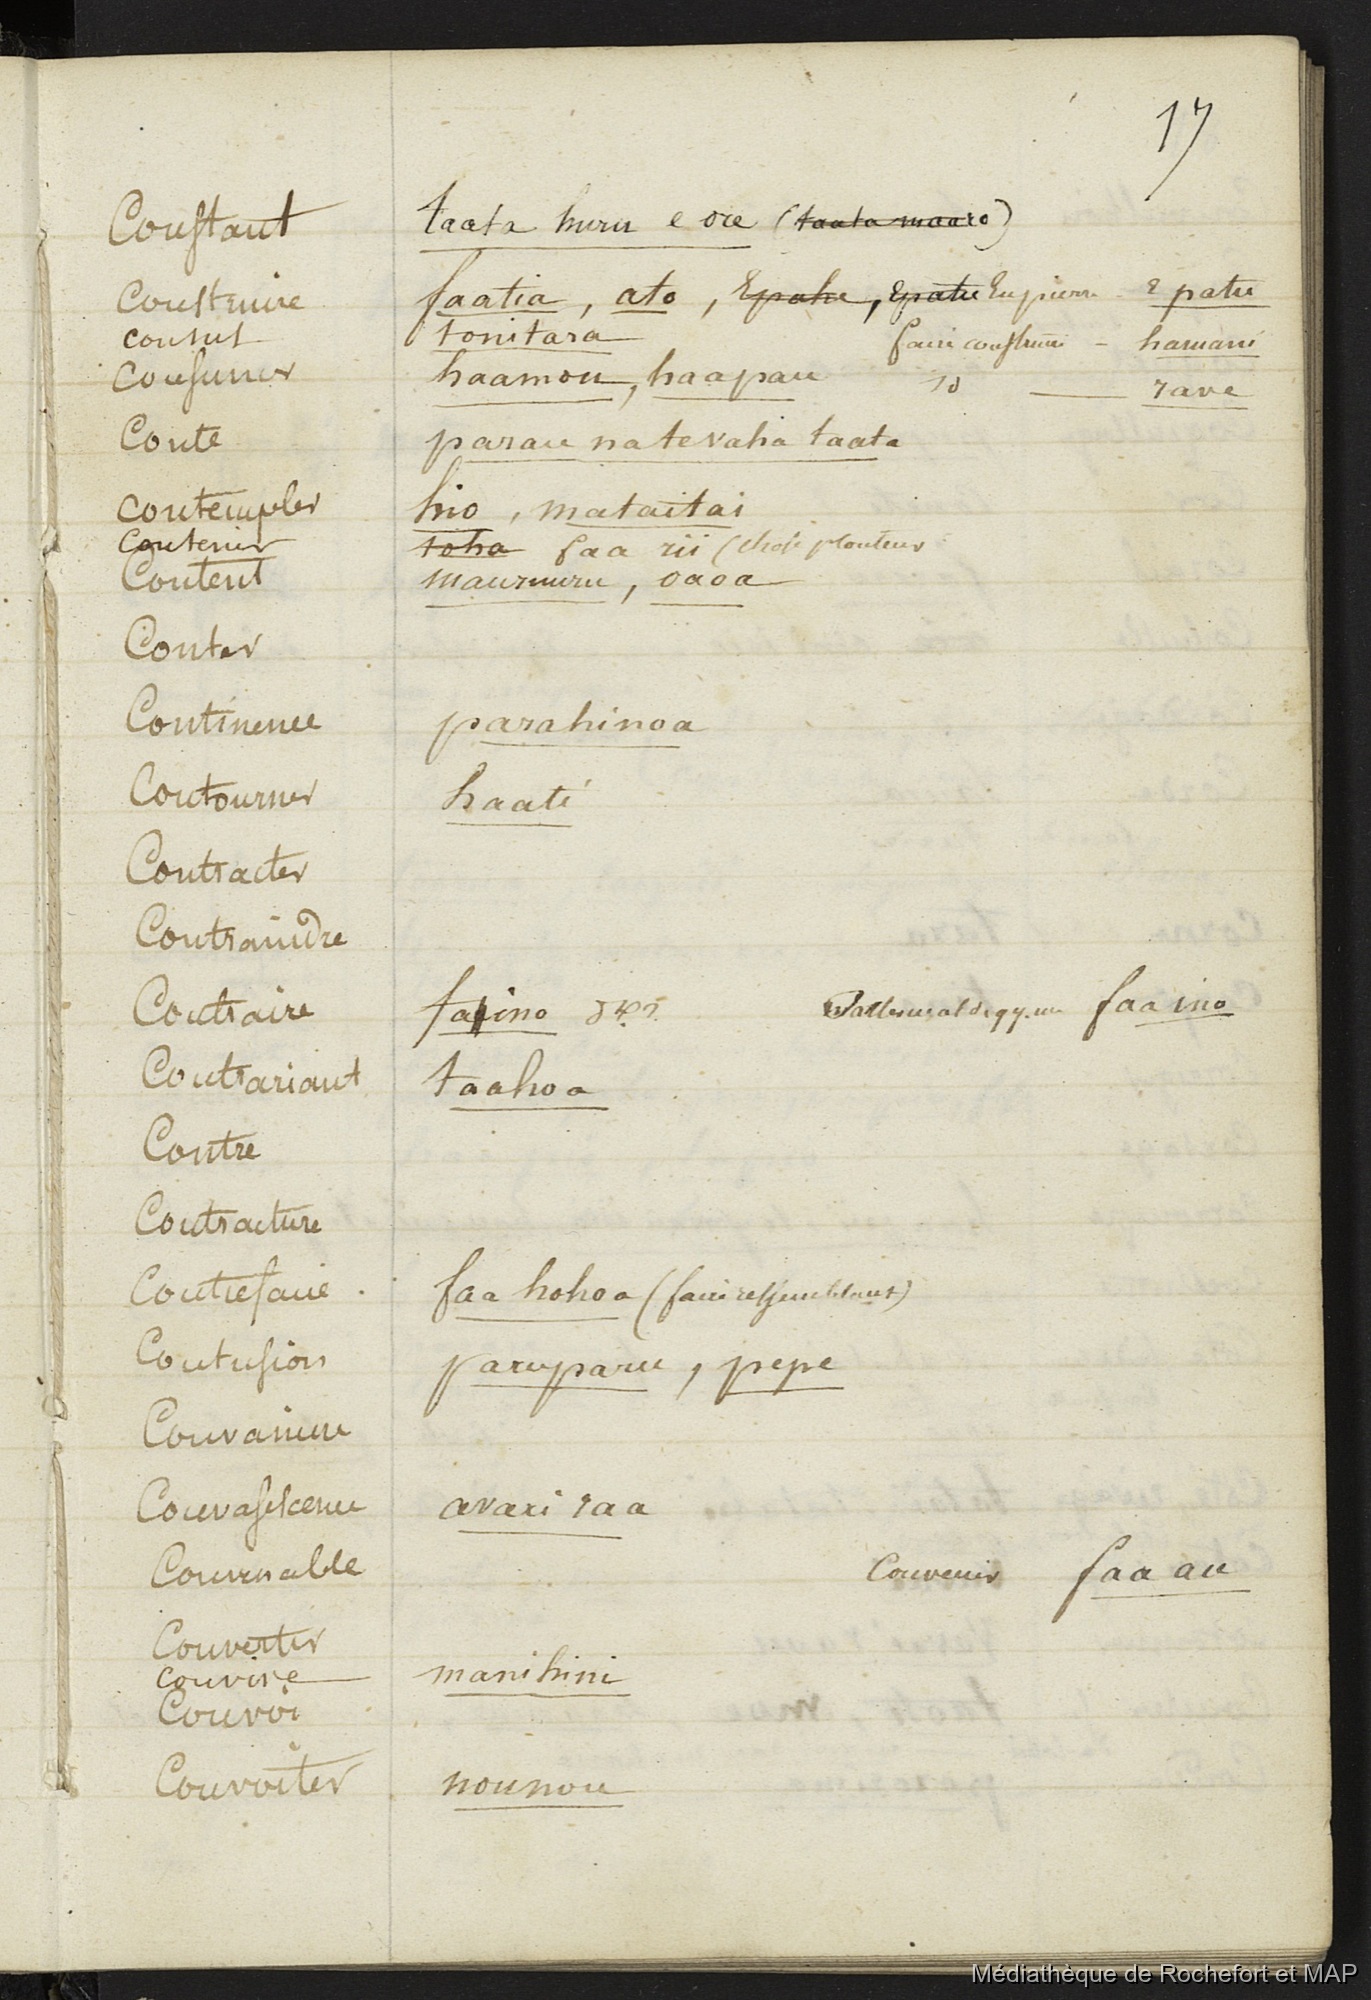 17
Constant taata huru e ore (taata maaro)
Construire faatia, ato, Epahu, Epatu En pierre - E patu
consul tonitara faire construire - hamani
Consumer haamou, haapau id — rave
Conte parau na te vahi a taata
contempler hio, mataitai
contenir toha faa rii (chose
Content maururu, oaoa
Conter
Continence parahinoa
Contourner haati
Contracter
Contraindre
Contraire faaino faa ino
Contrariant taahoa
Contre
Contracture
Contrefaire faa hohoa (faire ressemblant)
Contusion paruparu, pepe
Convaincre
Convalescence avari raa
Convenable Convenir faa au
Convertir
convive manihini
Convoi
Convoiter nounou
Médiathèque de Rochefort et MAP